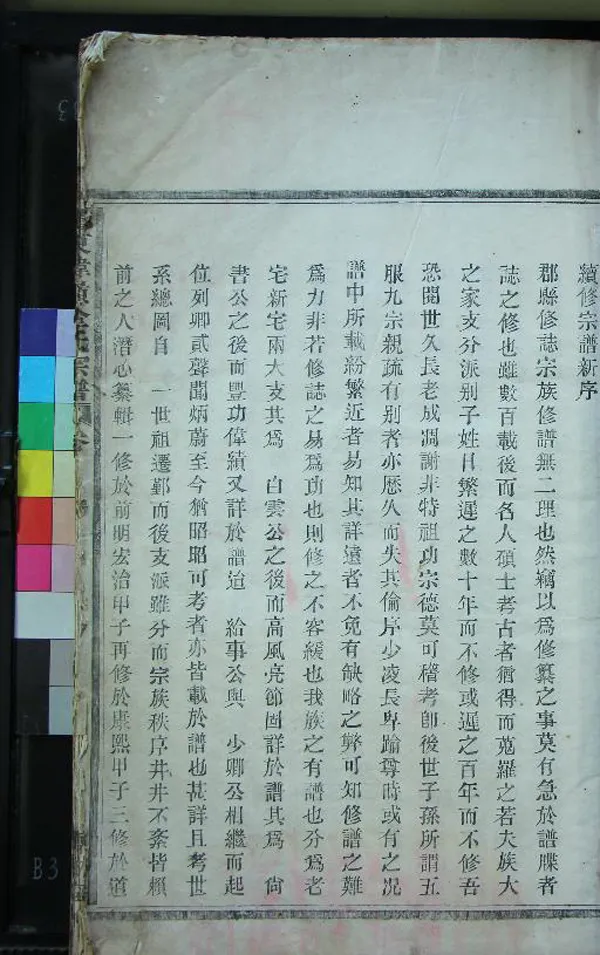 續修宗譜新序
郡縣修誌宗族修譜無二理也然竊以為修纂之事莫有急於譜牒者
誌之修也雖數百載後而名人碩士考古者猶得而蒐羅之若夫族大
之家支分派别子姓日繁遲之數十年而不修或遲之百年而不修吾
恐閱世久長老成凋謝非特祖功宗德莫可稽考即後世子孫所謂五
服九宗親疏有别者亦歷久而失其倫序少凌長卑踰尊時或有之况
譜中所載紛繁近者易知其詳遠者不免有缺略之弊可知修譜之難
為力非若修誌之易為功也則修之不容緩也我族之有譜也分為老
宅新宅兩大支其為 白雲公之後而高風亮節固詳於譜其為 尙
書公之後而豐功偉績又詳於譜迨 給事公與 少卿公相繼而起
位列卿貳聲聞炳蔚至今猶昭昭可考者亦皆載於譜也甚詳且考世
系總圖自 一世祖遷鄞而後支派雖分而宗族秩序井井不紊皆賴
前之人潛心纂輯一修於前明宏治甲子再修於康熙甲子三修於道
宗譜
B3